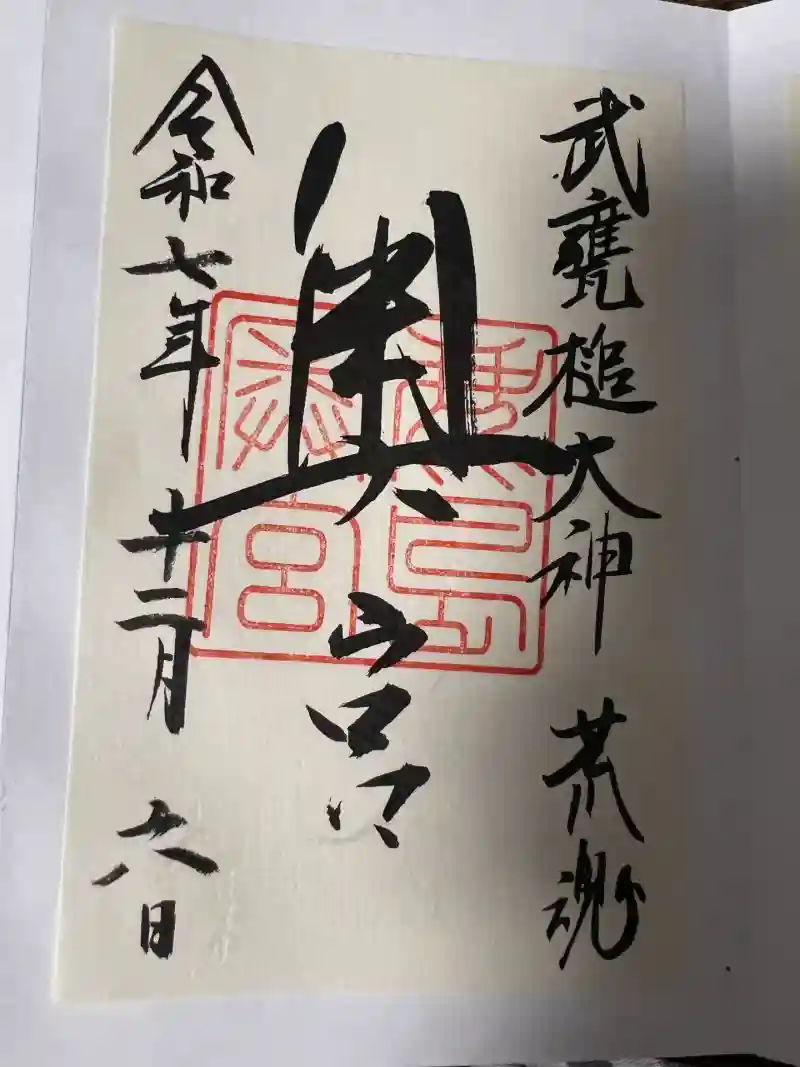 武甕槌大神 荒魂
奥宮
鹿島奥宮
令和七年十二月六日